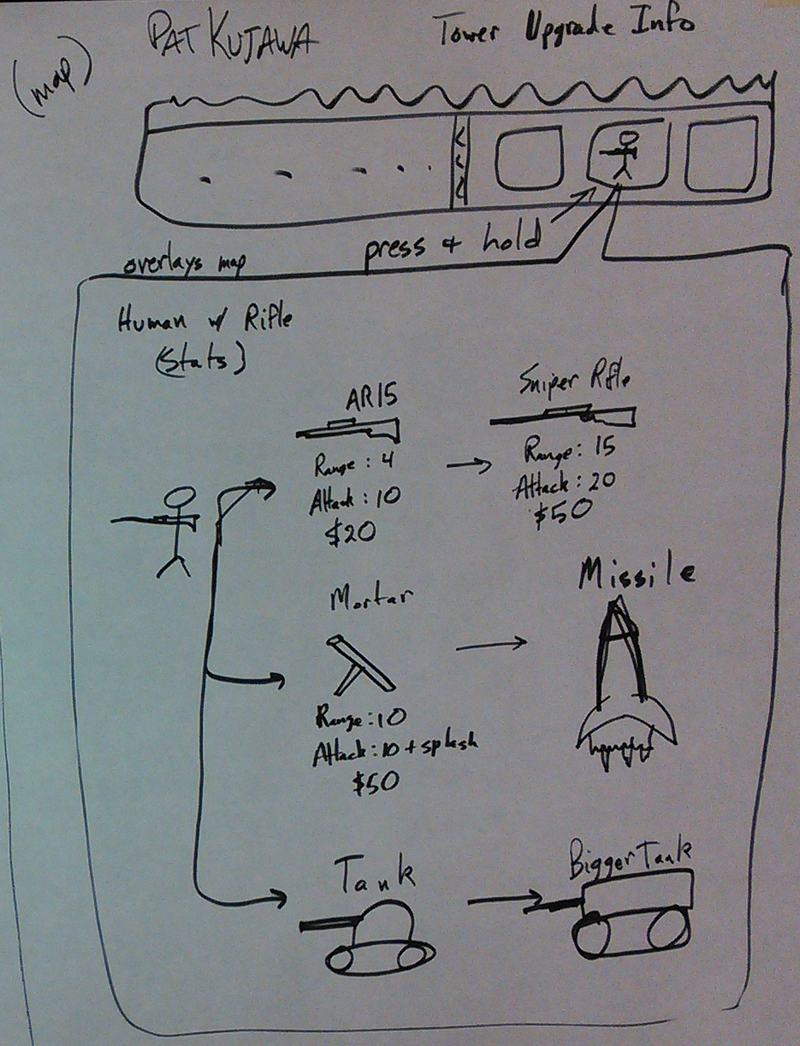 PAT KUJAWA
Tower Upgrade Info
(map)
press + hold
overlays map
Human w/ Rifle
(Stats)
AR15
Range: 4
Attack: 10
$20
Sniper Rifle
Range: 15
Attack: 20
$50
Mortar
Range: 10
Attack: 10 + splash
$50
Missile
Tank
Bigger Tank